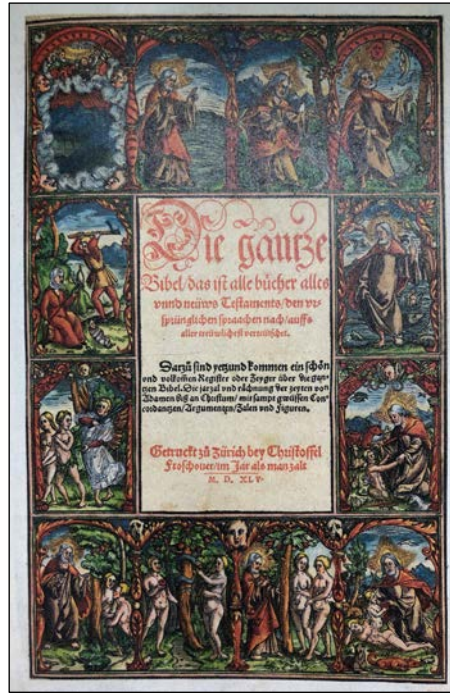 Die gantze
Bibel / das ist alle bücher alts
vnnd neüws Testaments / den vr-
sprünglichen spraachen nach / auffs
aller treüwlichest verteütschet.
Darzů sind yetzund kommen ein schön
vnd volkommen Register oder Zeyger über die gan-
tzen Bibel. Die jarzal vnd rächnung der zeyten von
Adamen biß an Christum / mit sampt gwüssen Con-
cordantzen / Argumenten / Zalen vnd Figuren.
Getruckt zů Zürich bey Christoffel
Froschouer / im Jar als man zalt
M. D. XLV.